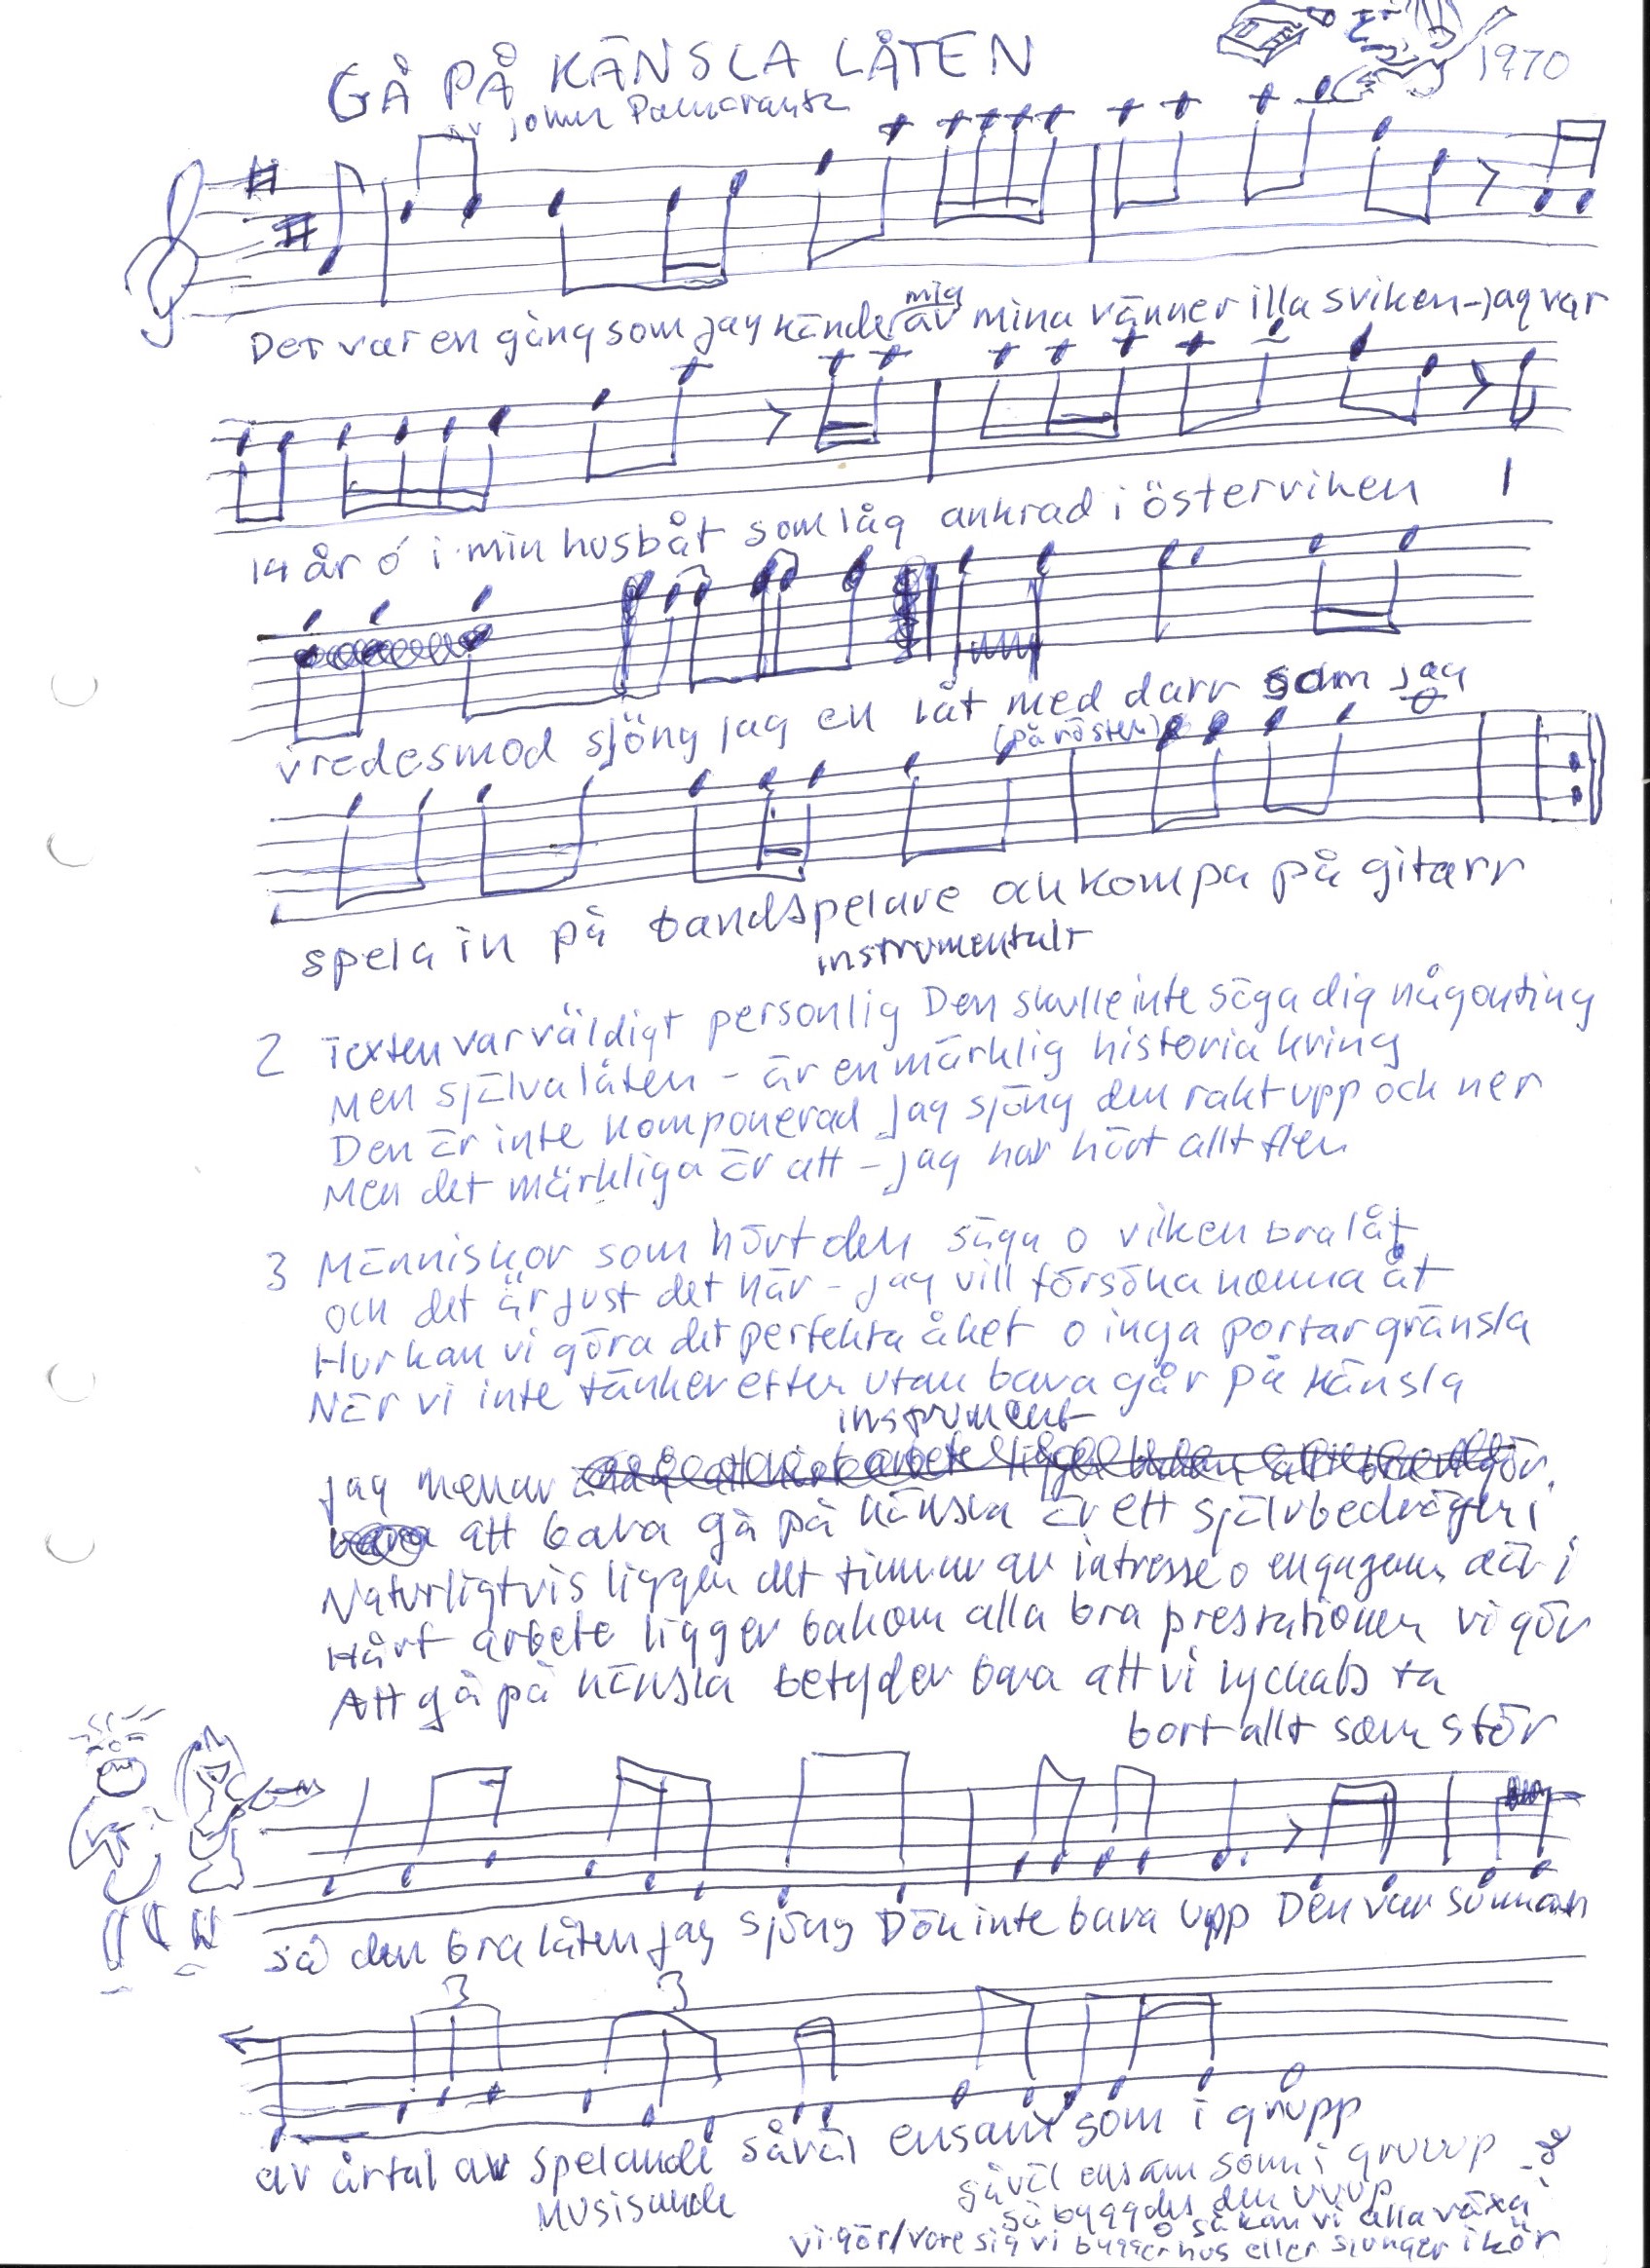 GÅ PÅ KÄNSLA LÅTEN
1970
av
Det var en gång som jag kände mig av mina vänner illa sviken - jag var
14 år ó i min husbåt som låg ankrad i österviken
I
vredesmod sjöng jag en låt med darr som jag
(på rösten)
spela in på bandspelare och kompa på gitarr
instrumentalt
2 Texten var väldigt personlig Den skulle inte säga dig någonting
Men själva låten - är en märklig historia kring
Den är inte komponerad jag sjöng den rakt upp och ner
Men det märkliga är att - jag har hört allt fler
3 Människor som hört den säga o vilken bra låt
och det är just det här - jag vill försöka komma åt
Hur kan vi göra det perfekta åket o inga portar gränsla
När vi inte tänker efter utan bara går på känsla
instrument
jag menar
att bara gå på känsla är ett självbedrägeri
Naturligtvis ligger det timmar av intresse o engagem där i
Hårt arbete ligger bakom alla bra prestationer vi gör
Att gå på känsla betyder bara att vi lyckats ta
bort allt som stör
så den bra låten jag sjöng Dök inte bara upp Den var summan
3 3
av årtal av spelande såväl ensam som i grupp
Musisande
såväl ensam som i gruuup
så byggdes den uuup
o så kan vi alla växa i de
vi gör/vare sig vi bygger hus eller sjunger i kör